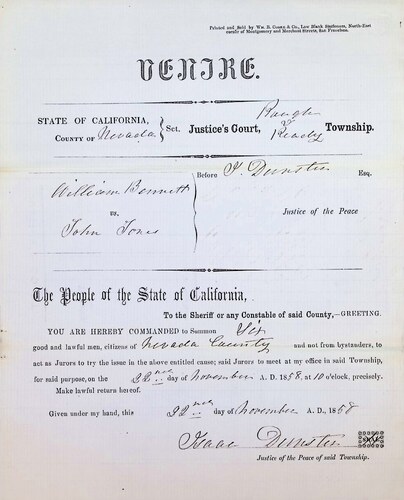 Printed and Sold by Wm. B. Cooke & Co., Law Blank Stationers, North-East
corner of Montgomery and Merchant Streets, San Francisco.
VENIRE.
STATE OF CALIFORNIA,
COUNTY OF Nevada } Sct. Justice's Court, Rough & Ready Township.
Before I. Dunster Esq.
William Bennett
vs.
John Jones
Justice of the Peace
The People of the State of California,
To the Sheriff or any Constable of said County,—GREETING.
YOU ARE HEREBY COMMANDED to Summon Six
good and lawful men, citizens of Nevada County and not from bystanders, to
act as Jurors to try the issue in the above entitled cause; said Jurors to meet at my office in said Township,
for said purpose, on the 22nd day of November A. D. 1858, at 10 o'clock, precisely.
Make lawful return hereof.
Given under my hand, this 22nd day of November A. D., 1858
Isaac Dunster
Justice of the Peace of said Township.